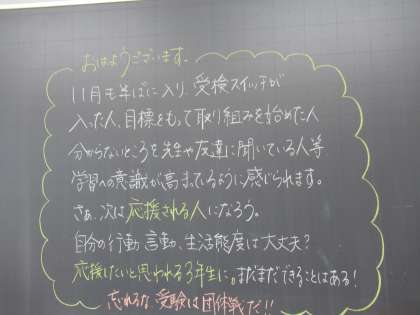 おはようございます。
11月も半ばに入り、受検スイッチが
入った人、目標をもって取り組みを始めた人
分からないところを先生や友達に聞いている人等
学習への意識が高まっているように感じられます。
さぁ、次は応援される人になろう。
自分の行動、言動、生活態度は大丈夫?
応援したいと思われる3年生に。まだまだできることはある!
忘れるな、受験は団体戦だ!!